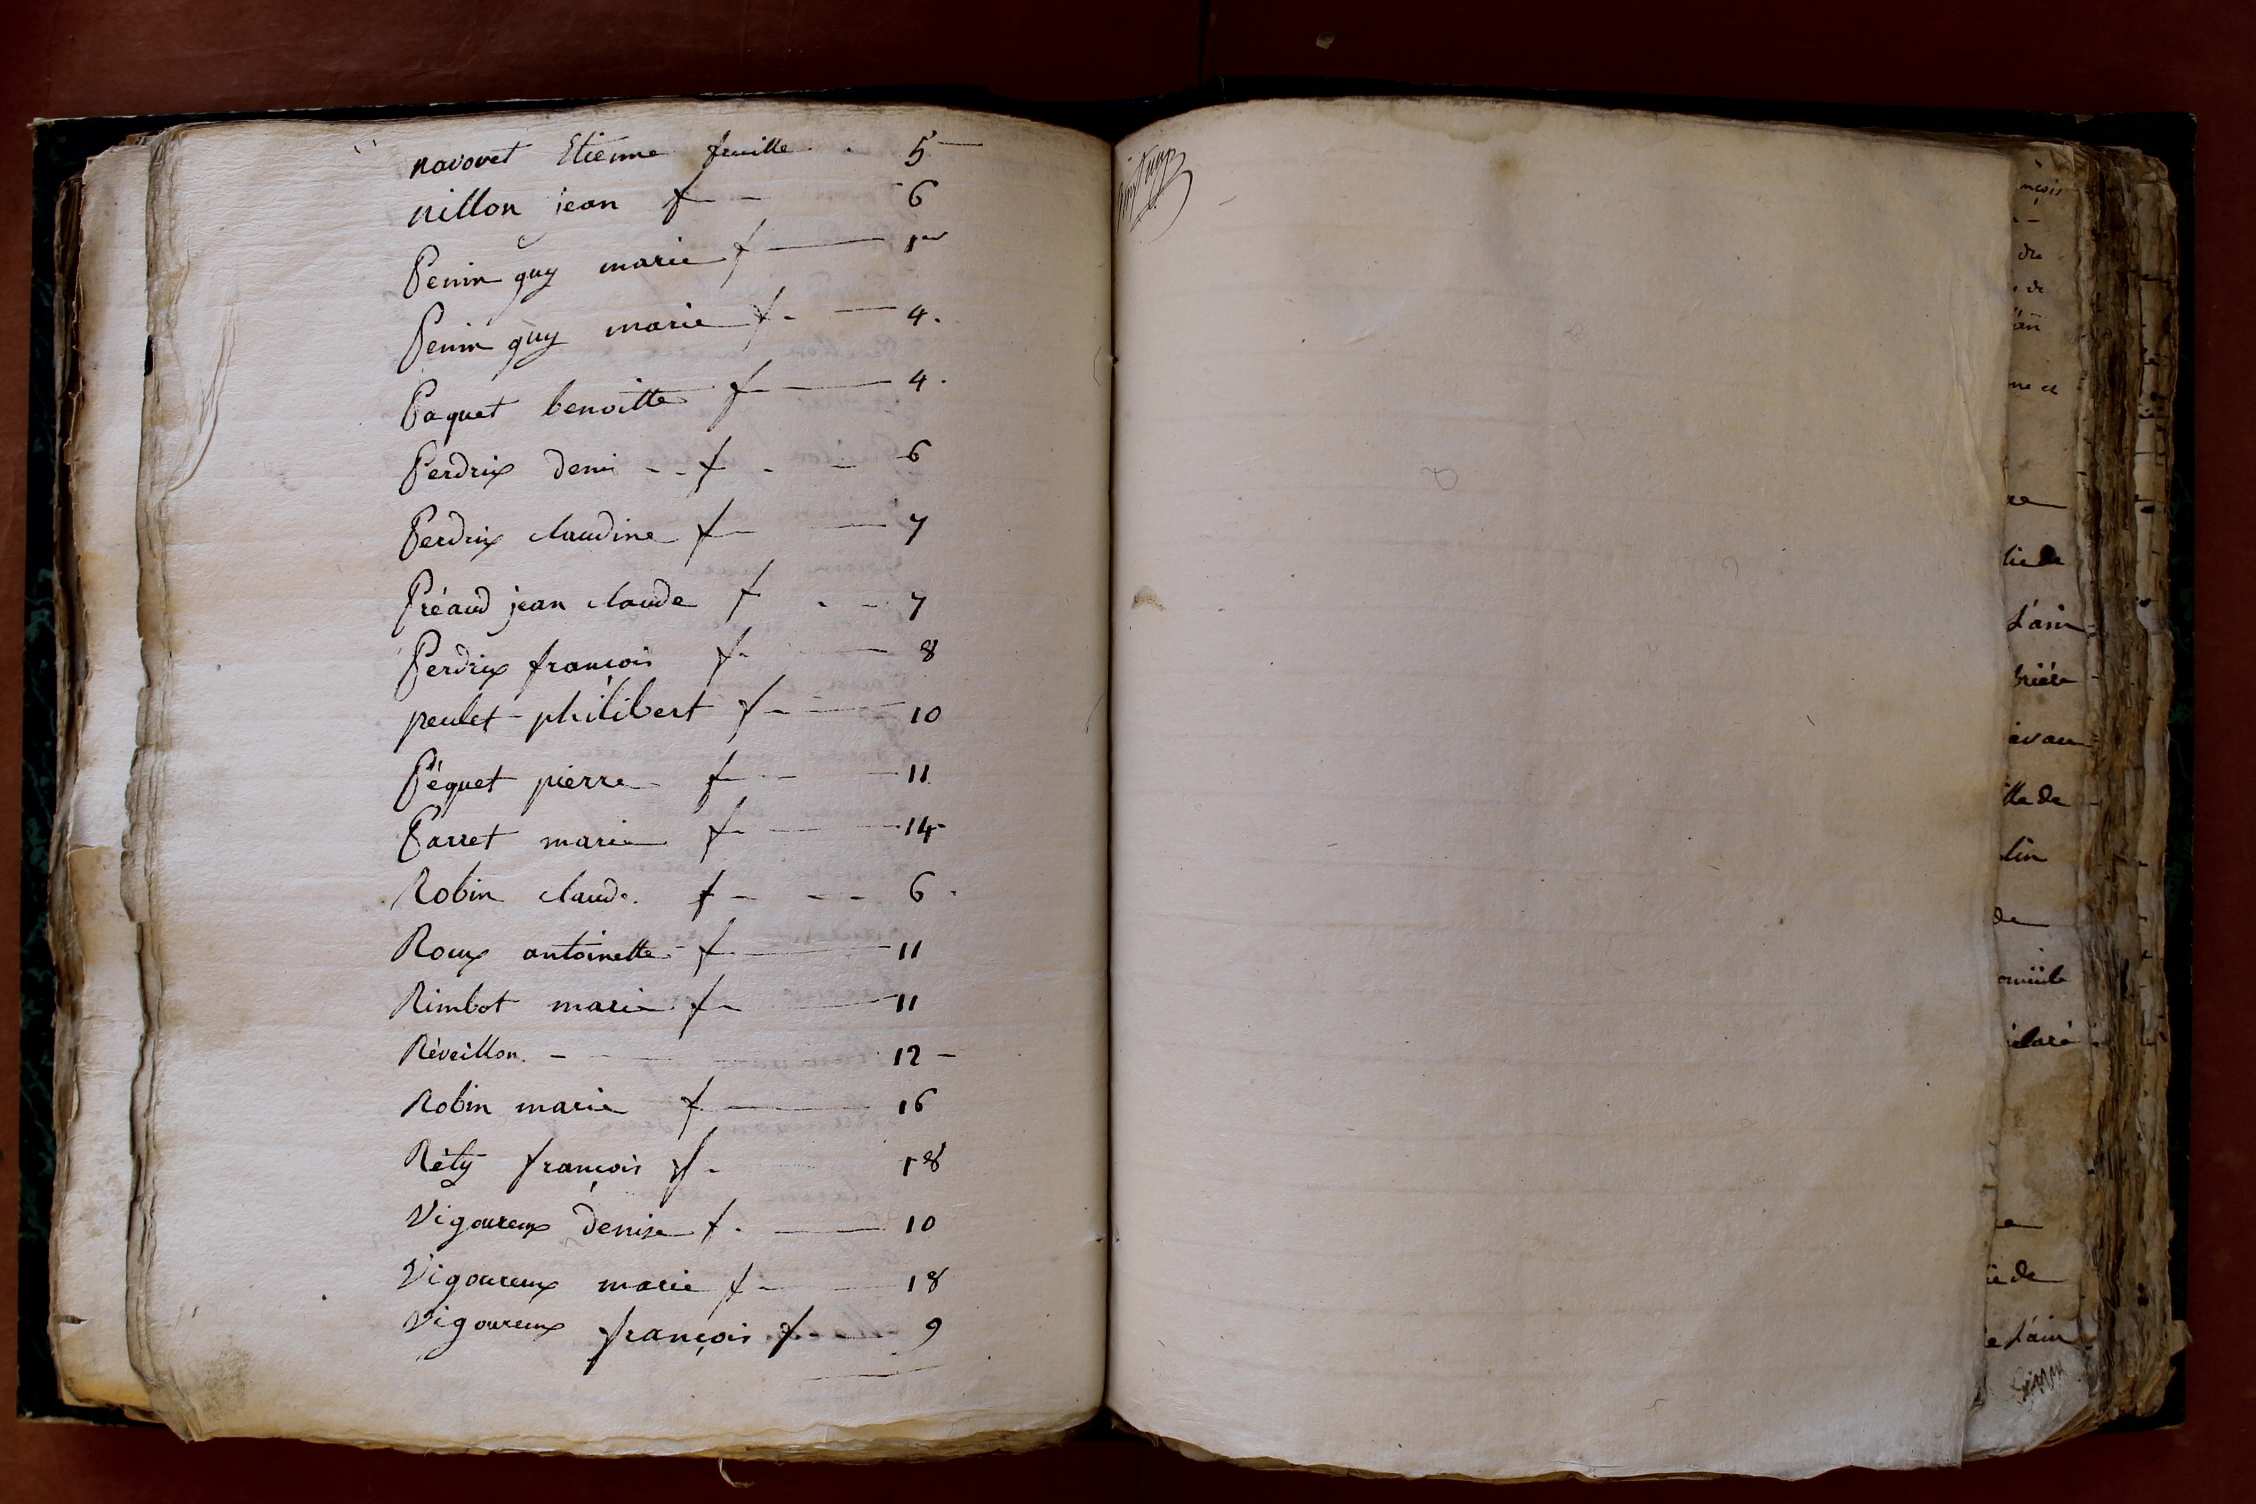 navovet Etiénne feuille . 5 —
nillon jean f — 6
Penin guy marie f — 1er
Penin guy marie f - — 4.
Paquet benoitte f — 4.
Perdrix deni - - f - — 6
Perdrix claudine f — 7
Préaud jean claude f - — 7
Perdrix françois f - — 8
peulet - philibert f - — 10
Péquet pierre f - — 11
Parret marie f - — 14 -
Robin claude. f - — 6 -
Roux antoinette f — 11
Rimbot marie f - — 11
Réveillon. - — 12 —
Robin marie f — 16
Réty françois f - 18
Vigoureux denise f - — 10
Vigoureux marie f - — 18
Vigoureux françois f - — 9
nçois
de
de
me et
lie de
d'ain
ille de
lin
de
claré
ie de
e l'ain